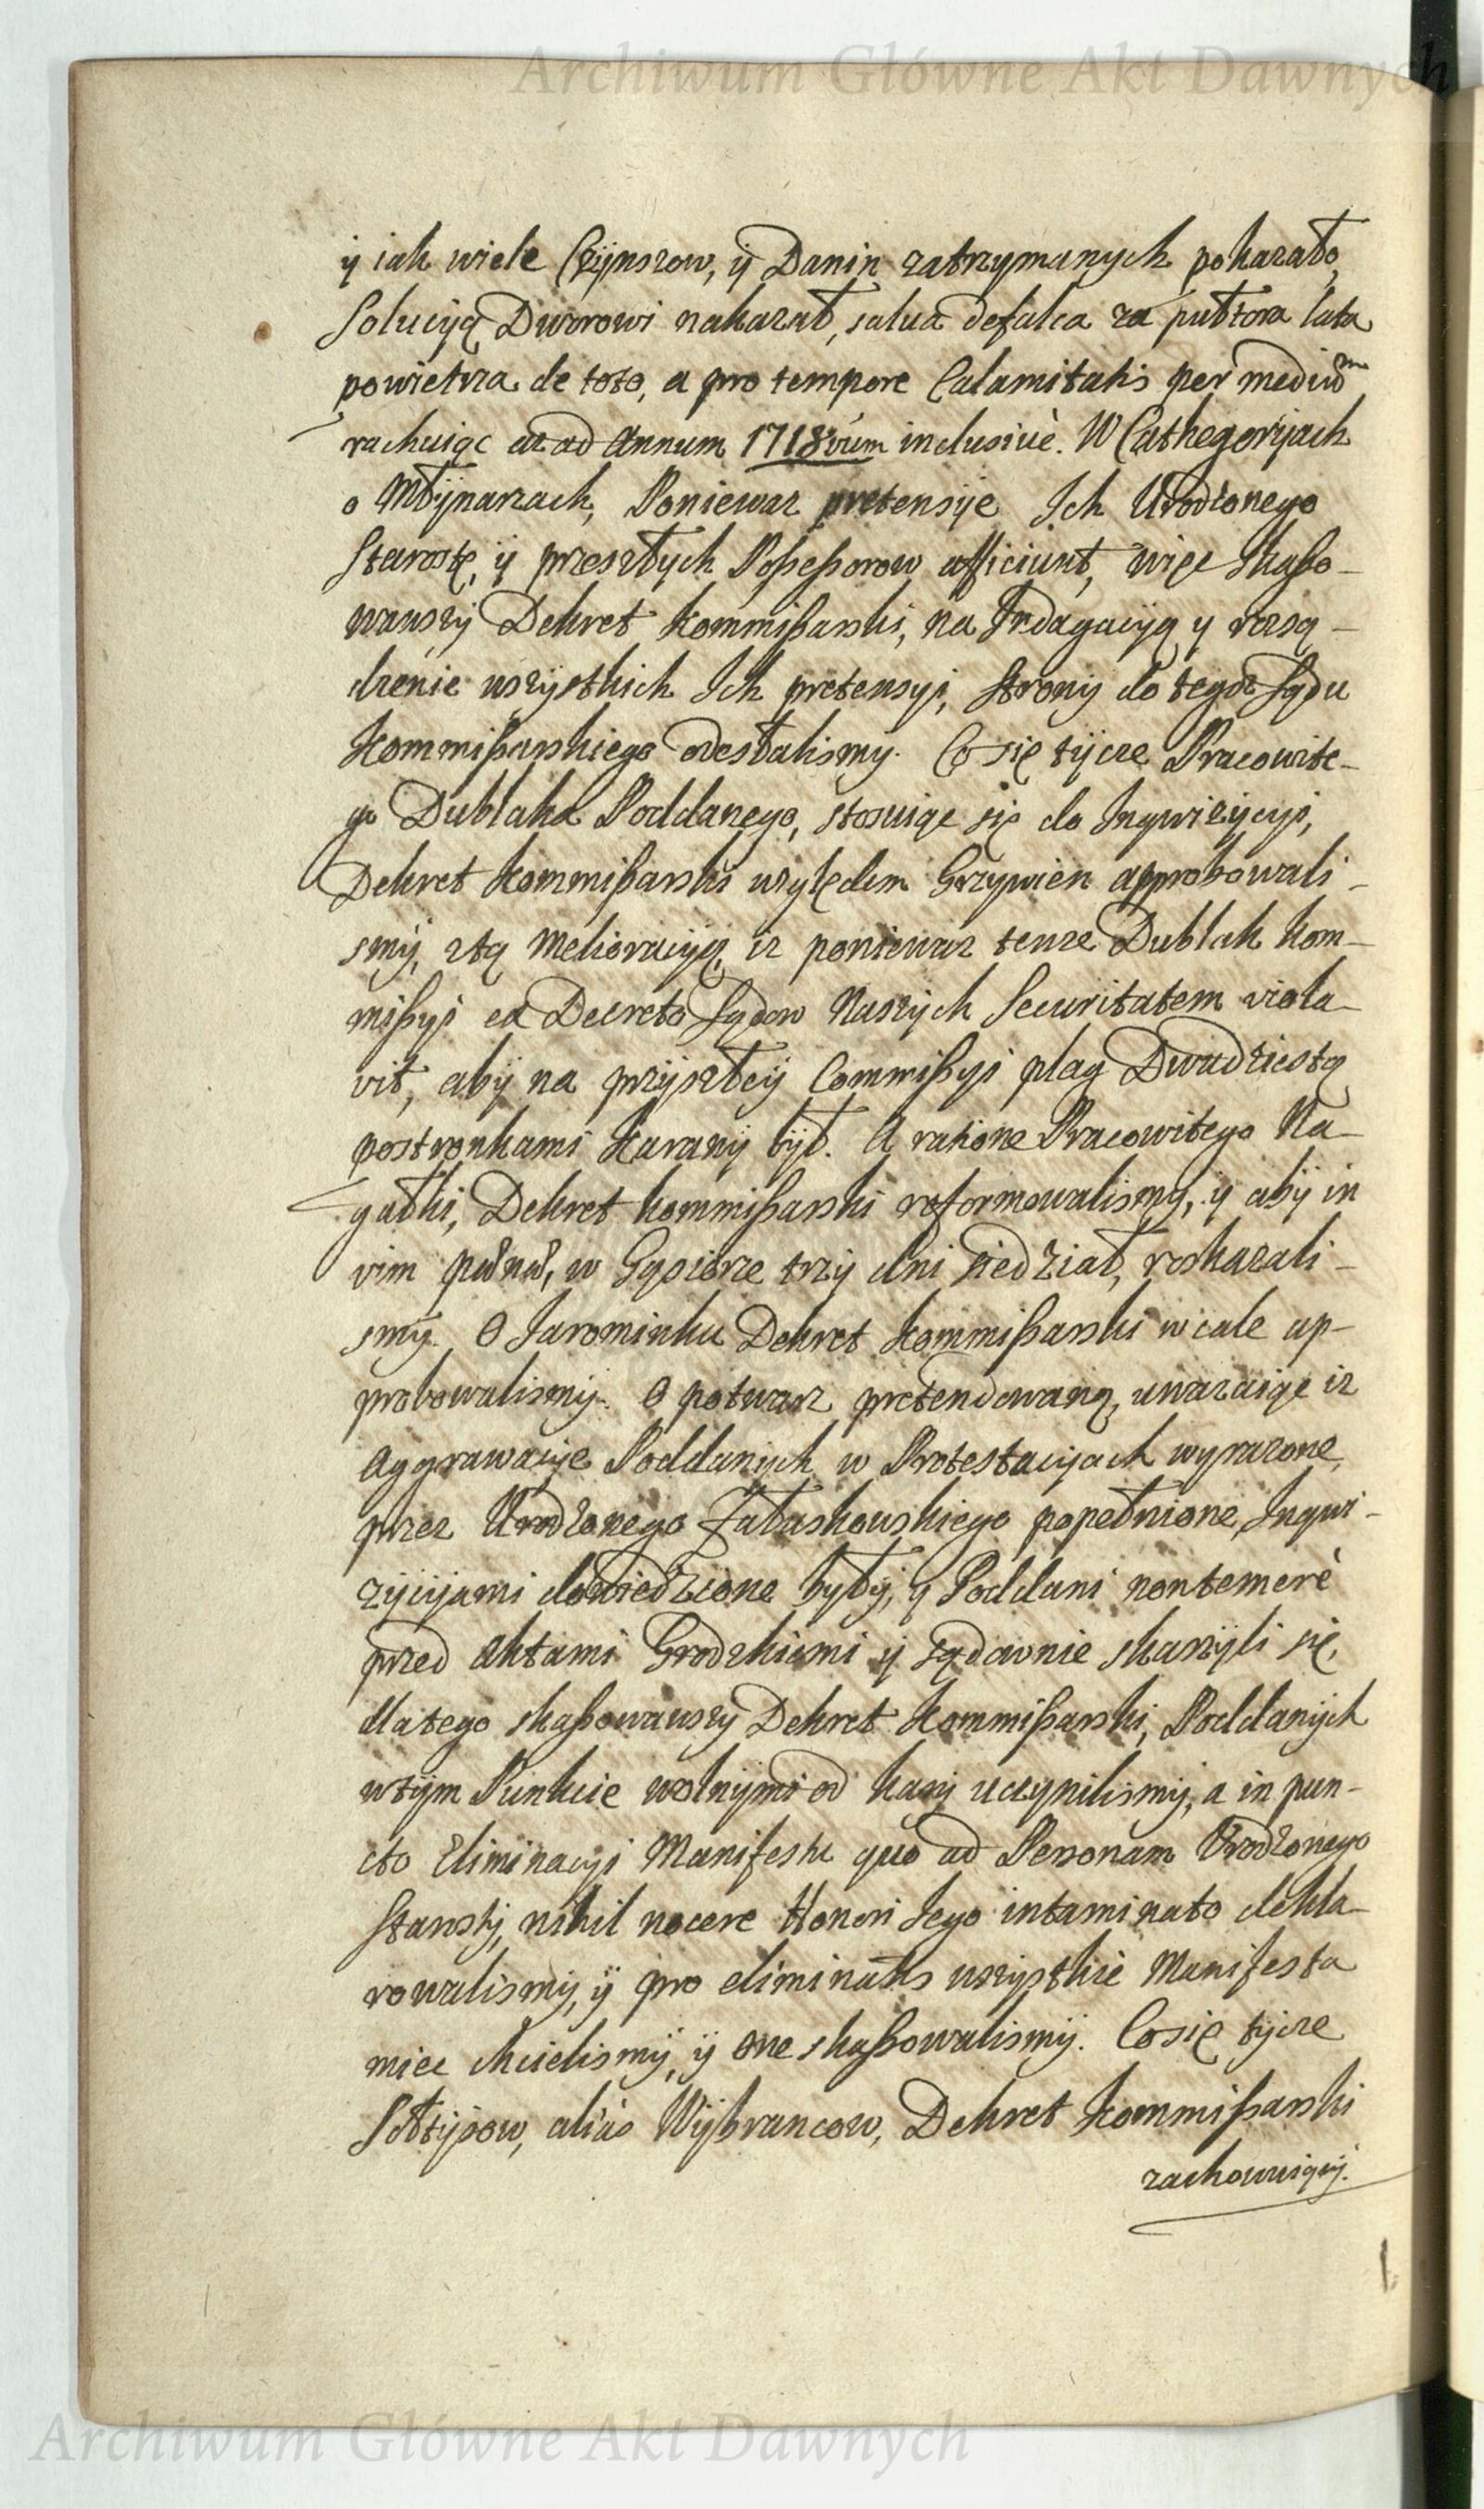 Archiwum Główne Akt Dawnych
ÿ iak wiele Czÿnszow, ÿ Danin zatrzymanych pokazało,
Solucÿą Dworowi nakazał, salua defalca za pułtora lata
powietrza de toto, a pro tempore Calamitatis per mediu͠m
rachuiąc az ad Annum 1718vum inclusivè. W Cathegorÿach
o Młÿnarzach, Poniewaz pretensÿe Ich Urodzonego
Starostę, ÿ przeszłych Poßeßorow afficiunt, więc skaßo-
wawszÿ Dekret Kommißarski, na Indagacÿą y rozsą-
dzenie wszÿstkich Ich pretensyi, Stronÿ do tegoz Sądu
Kommißarskiego odesłalismy. Co się tÿcze Pracowite-
go Dublaka Poddanego, stosuiąc się do Inqwizÿcyi,
Dekret Kommißarski względem Grzywien approbowali-
smÿ, ztą melioracÿą, iz poniewaz tenze Dublak Kom-
mißyi ex Decreto Sądow Naszÿch Securitatem viola-
vit, abÿ na przÿszłeÿ Commißyi plag Dwudziestą
postronkami karanÿ bÿł. A ratione Pracowitego Na-
gałki, Dekret kommißarski reformowalismy, ÿ abÿ in
vim w Gąsiorze trzÿ dni siedział, roskazali-
smÿ. O Jarominku Dekret Kommißarski wcale ap-
probowalismÿ. O potwarz pretendowaną, uwazaiąc iz
Aggrawacÿe Poddanÿch w Protestacÿach wyrazone,
przez Urodzonego Załuskowskiego popełnione, Inqwi-
zÿcÿami dowiedzione byłÿ, y Poddani nontemerè
przed Aktami Grodzkiemi ÿ sądownie skarzÿli się,
dlatego skaßowawszÿ Dekret Kommißarski, Poddanÿch
wtÿm Punkcie wolnÿmi od karÿ uczynilismÿ, a in pun-
cto Eliminacyi Manifestu quo ad Personam Urodzonego
Starostÿ, nihil nocere Honori Jego intaminato dekla-
rowalismÿ, ÿ pro eliminatis wszystkie Manifesta
miec chcielismÿ, ÿ one skaßowalismÿ. Cosię tÿcze
Sołtÿsow, aliàs Wÿbrancow, Dekret Kommißarski
zachowuiącÿ.
Archiwum Główne Akt Dawnych